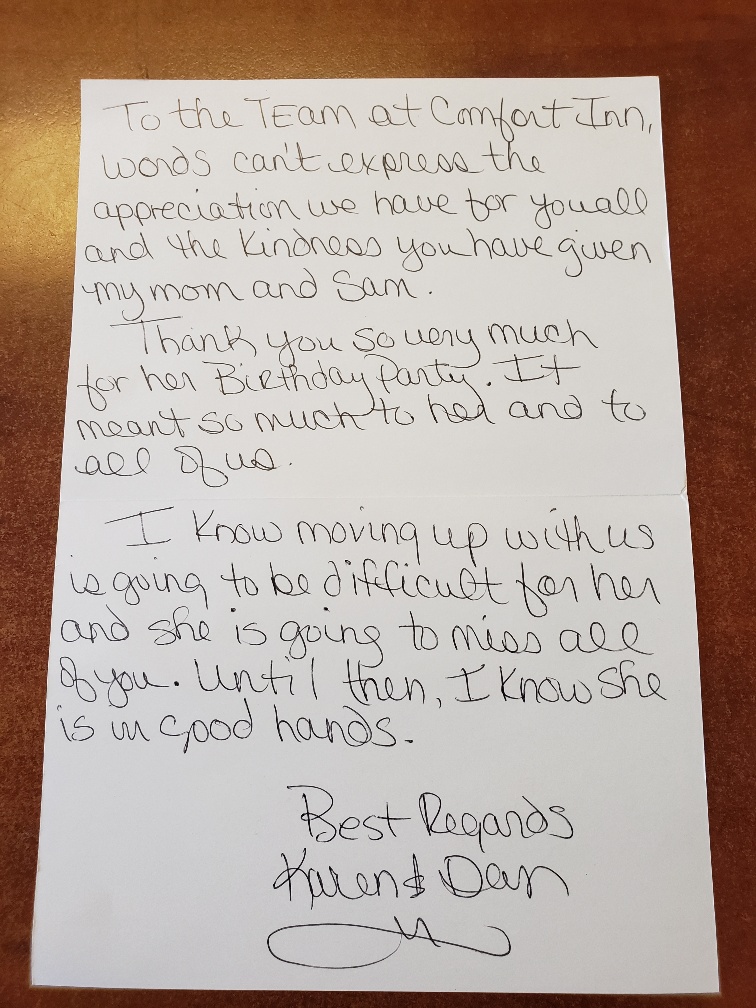 To the TEam at Comfort Inn,
words can't express the
appreciation we have for you all
and the kindness you have given
my mom and Sam.
Thank you so very much
for her Birthday Party. It
meant so much to her and to
all of us.
I know moving up with us
is going to be difficult for her
and she is going to miss all
of you. Until then, I know she
is in good hands.
Best Regards
Karen & Dan